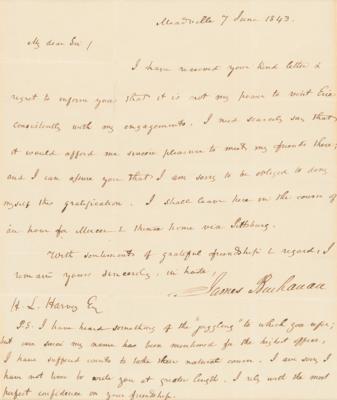 Meadville 7 June 1843.
My dear Sir /
I have received your kind letter &
regret to inform you that it is not in my power to visit Erie
consistently with my engagements. I need scarcely say that
it would afford me sincere pleasure to meet my friends there;
and I can assure you that I am sorry to be obliged to deny
myself this gratification. I shall leave here in the course of
an hour for Mercer & thence home via Pittsburg.
With sentiments of grateful friendship & regard, I
remain yours sincerely, in haste,
James Buchanan
H. L. Harvey Esq
P.S. I have heard something of the "juggling" to which you refer;
but ever since my name has been mentioned for the highest office,
I have suffered events to take their natural course. I am sorry I
have not time to write you at greater length. I rely with the most
perfect confidence on your friendship.